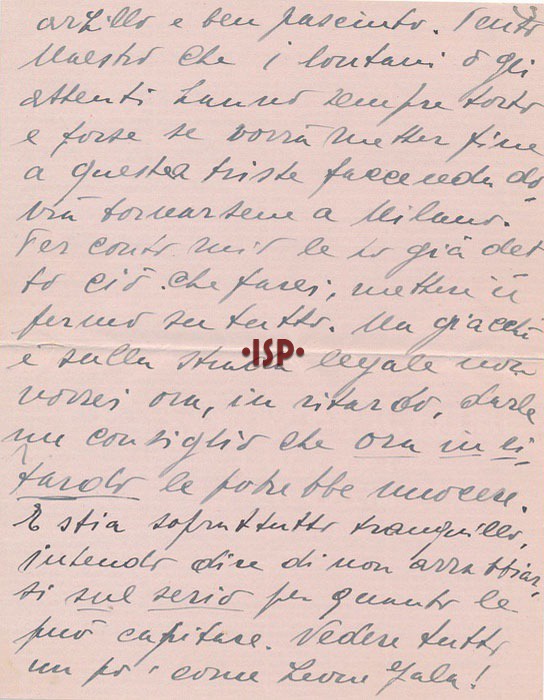 arzillo e ben pasciuto. Tento
Maestro che i lontani o gli
assenti hanno sempre torto
e forse se vorrà metter fine
a questa triste faccenda do
vrà tornarsene a Milano.
Per conto mio le ho già det
to ciò che farei, mettere il
fermo su tutto. Ma giacchè
è sulla strada legale non
vorrei ora, in ritardo, darle
un consiglio che ora in ri
tardo le potrebbe nuocere.
E stia soprattutto tranquillo,
intendo dire di non arrabbiar
si sul serio per quanto le
può capitare. Vedere tutto
un po' come Leone Gala!
·ISP·